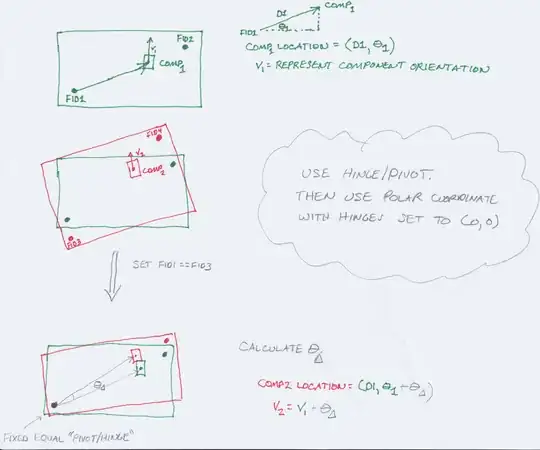 FID2
V1
COMP1
FID1
COMP1
D1
θ1
FID1
COMP1 LOCATION = (D1, θ1)
V1 = REPRESENT COMPONENT ORIENTATION
FID4
V2
COMP2
FID3
USE HINGE/PIVOT.
THEN USE POLAR COORDINATE
WITH HINGES SET TO (0,0)
SET FID1 == FID3
CALCULATE θΔ
θΔ
COMP2 LOCATION = (D1, θ1 - θΔ)
V2 = V1 - θΔ
FIXED EQUAL "PIVOT/HINGE"